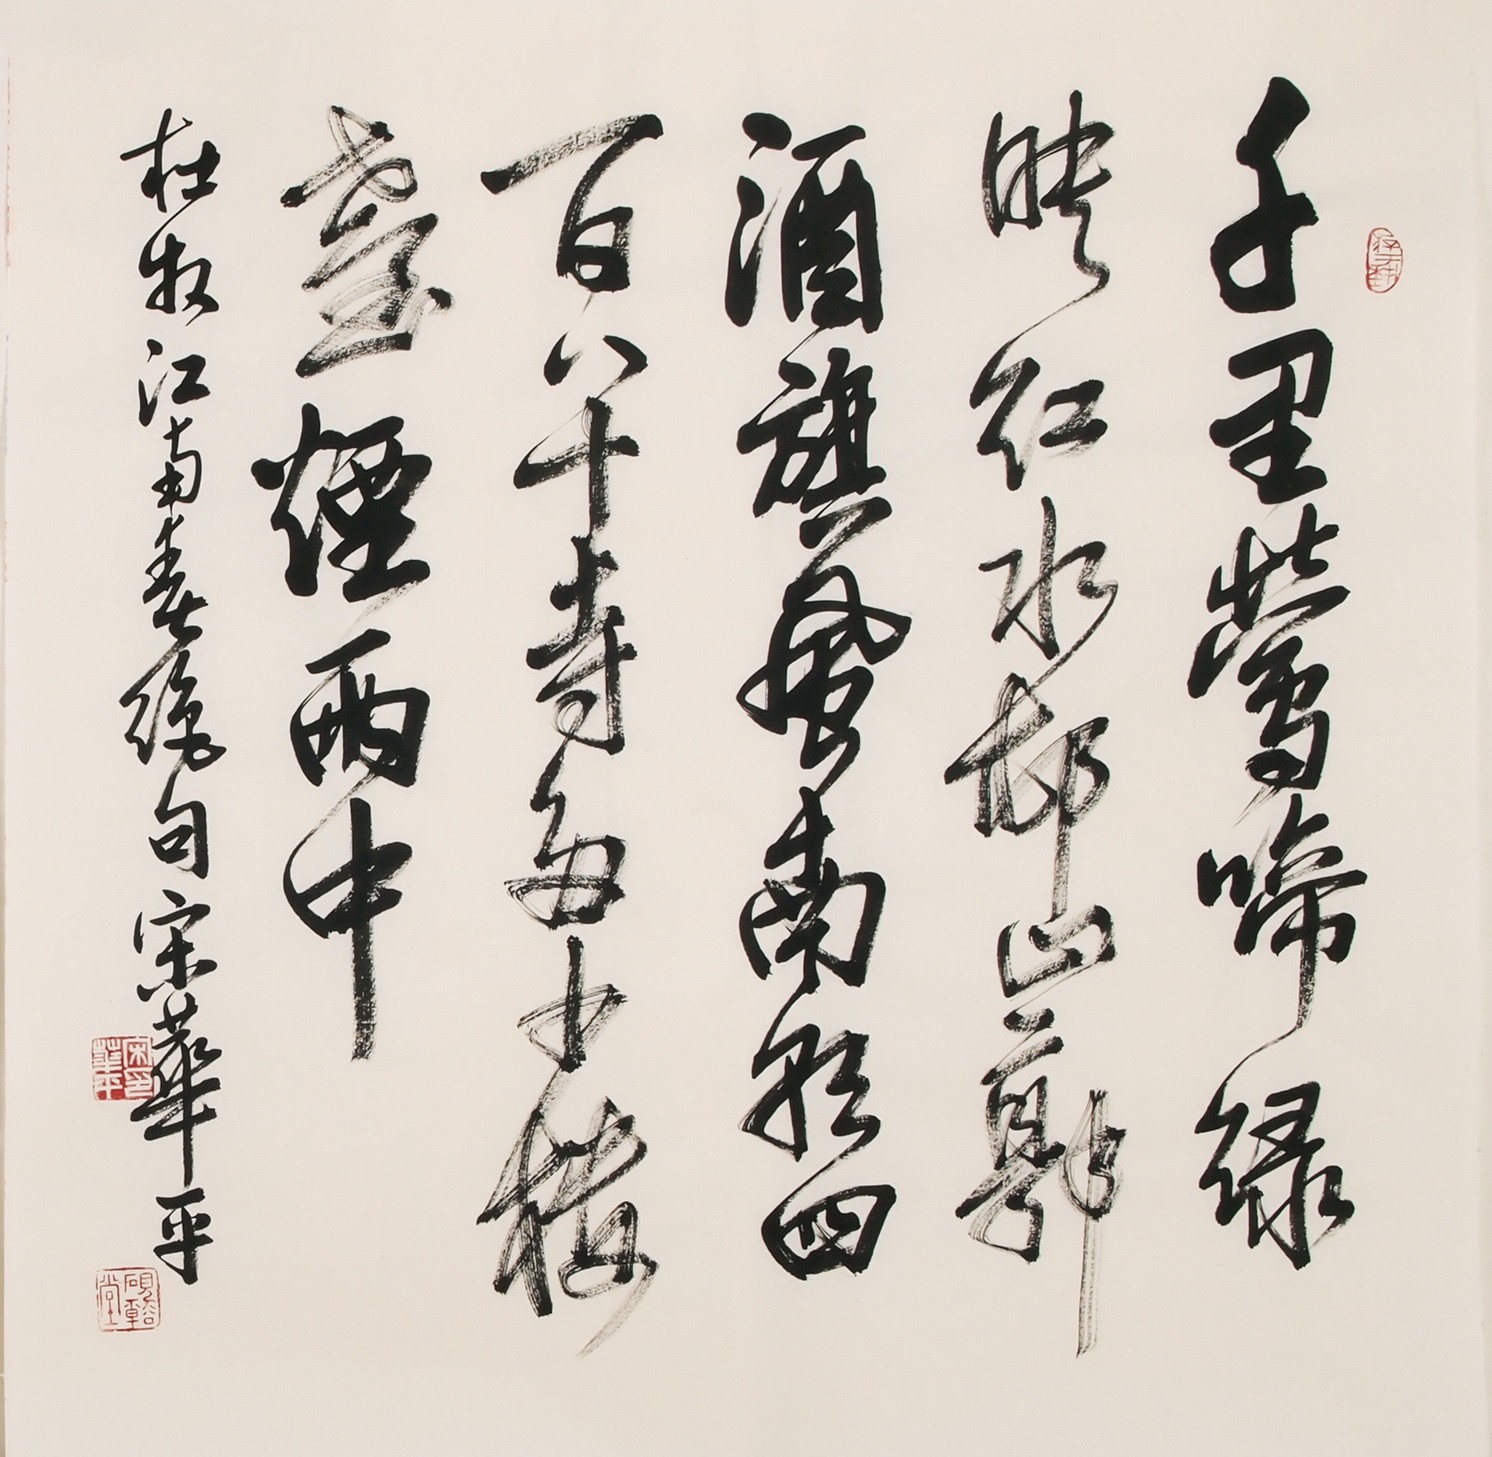 千里鶯啼綠
映紅水邨山郭
酒旗風南朝四
百八十寺多少樓
臺煙雨中
杜牧江南春絕句宋華平
宋華平印